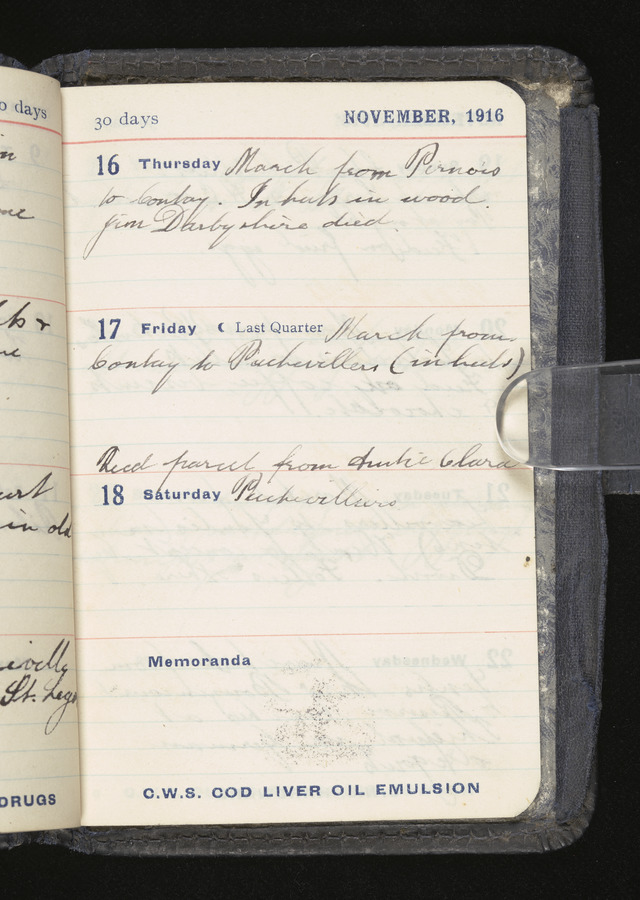 o days
in
me
ks &
me
in old
St. Leg
DRUGS
30 days NOVEMBER, 1916
16 Thursday March from Pernois
to Contay. In huts in wood.
Jim Darbyshire died.
17 Friday ☾ Last Quarter March from
Contay to Puchevillers (in huts)
Recd parcel from Auntie Clara
18 Saturday Puchevillers
Memoranda
C.W.S. COD LIVER OIL EMULSION